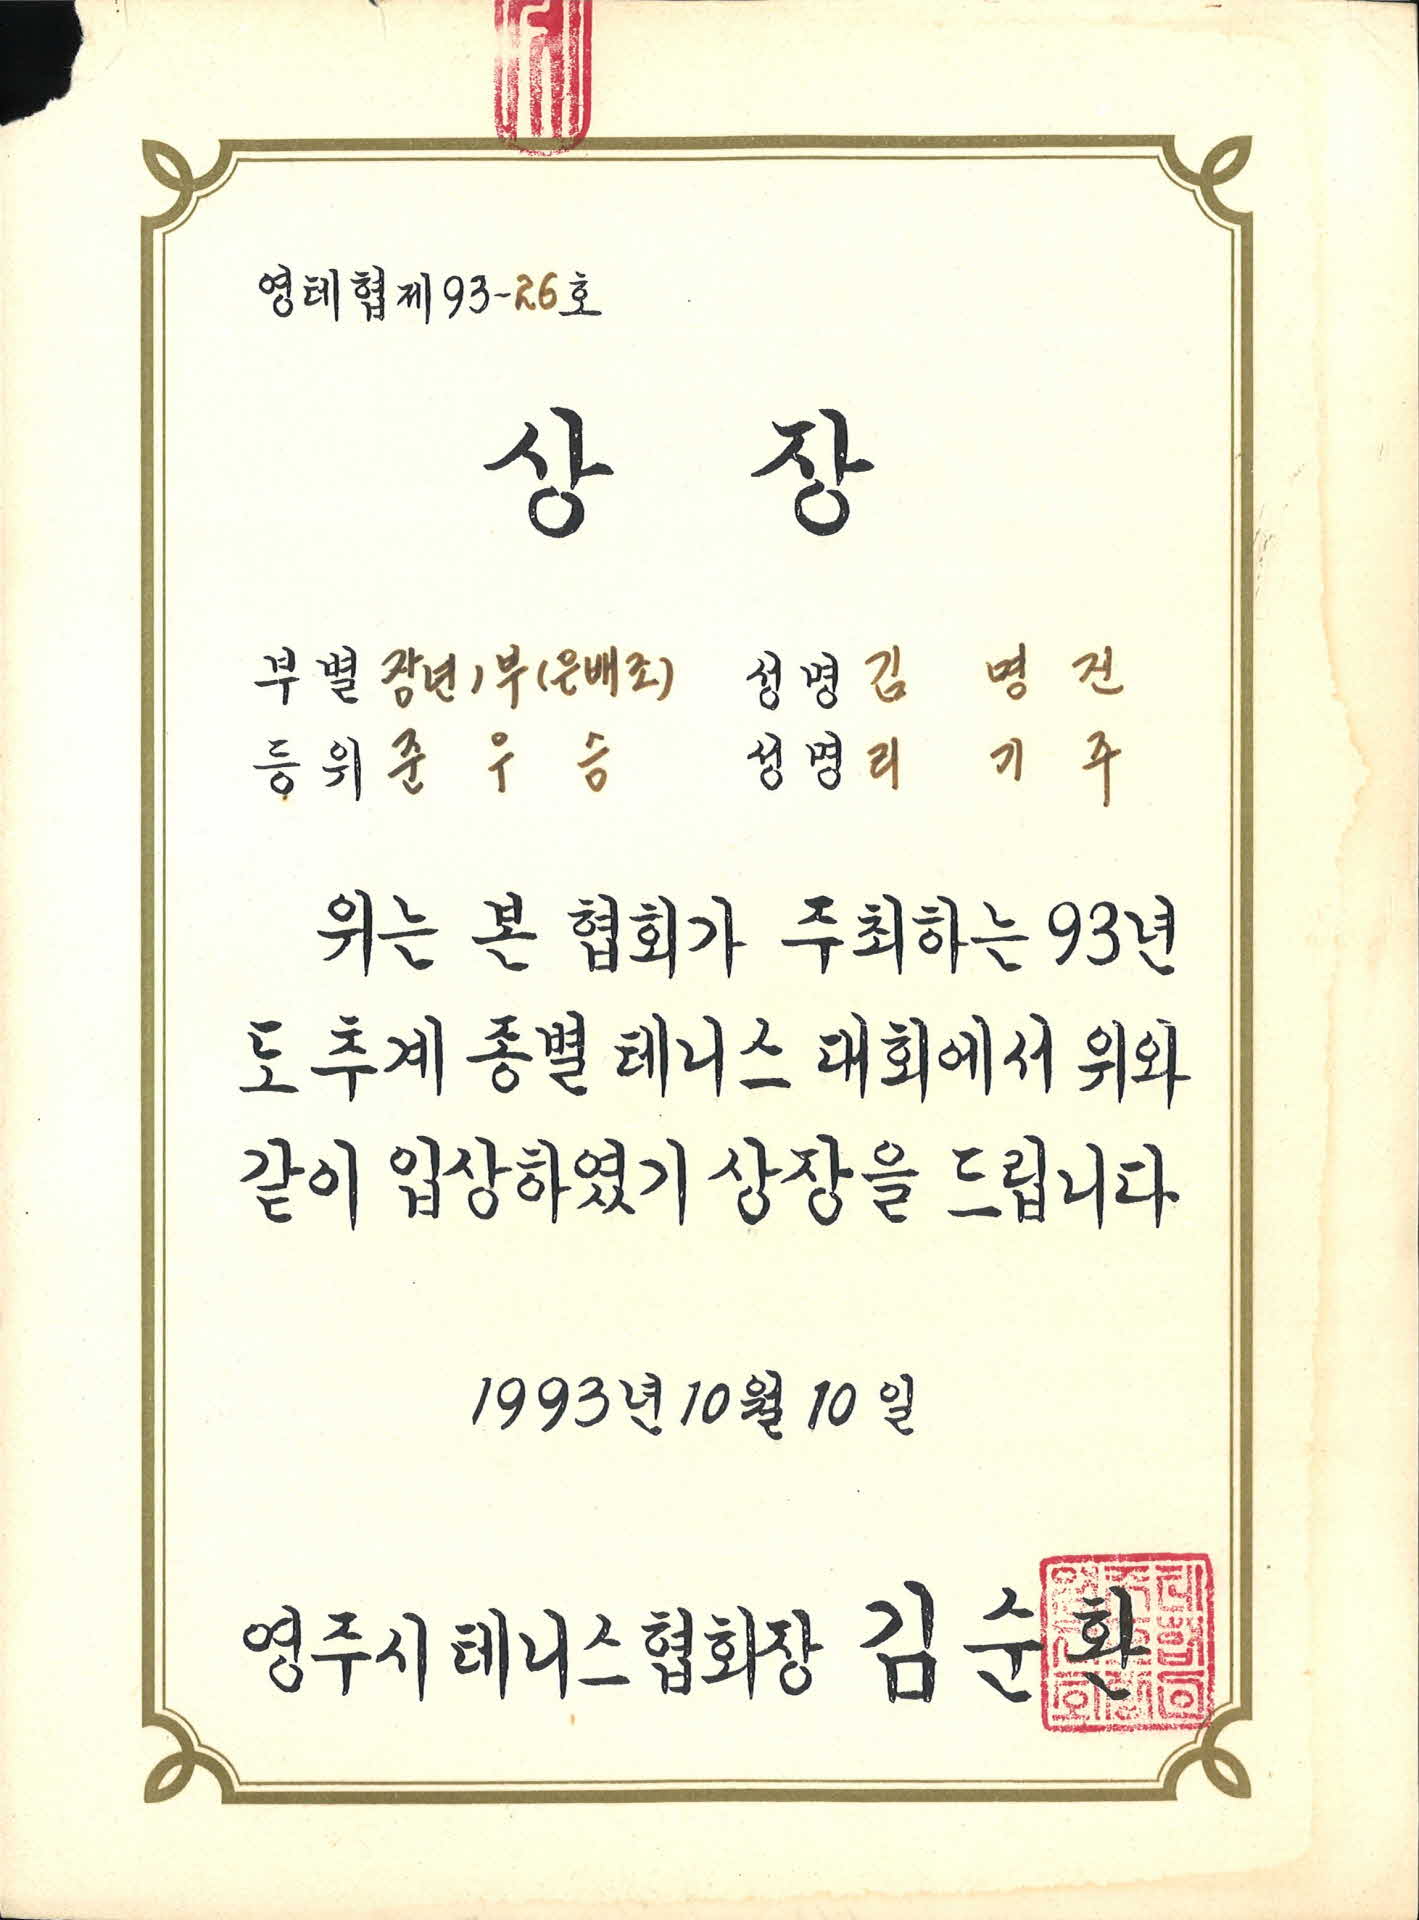 영테협제93-26호
상 장
부 별 장년1부(은배조) 성명 김 명 진
등 위 준 우 승 성명 리 기 주
위는 본 협회가 주최하는 93년
도 추계 종별 테니스 대회에서 위와
같이 입상하였기 상장을 드립니다
1993년 10월 10일
영주시 테니스협회장 김순환